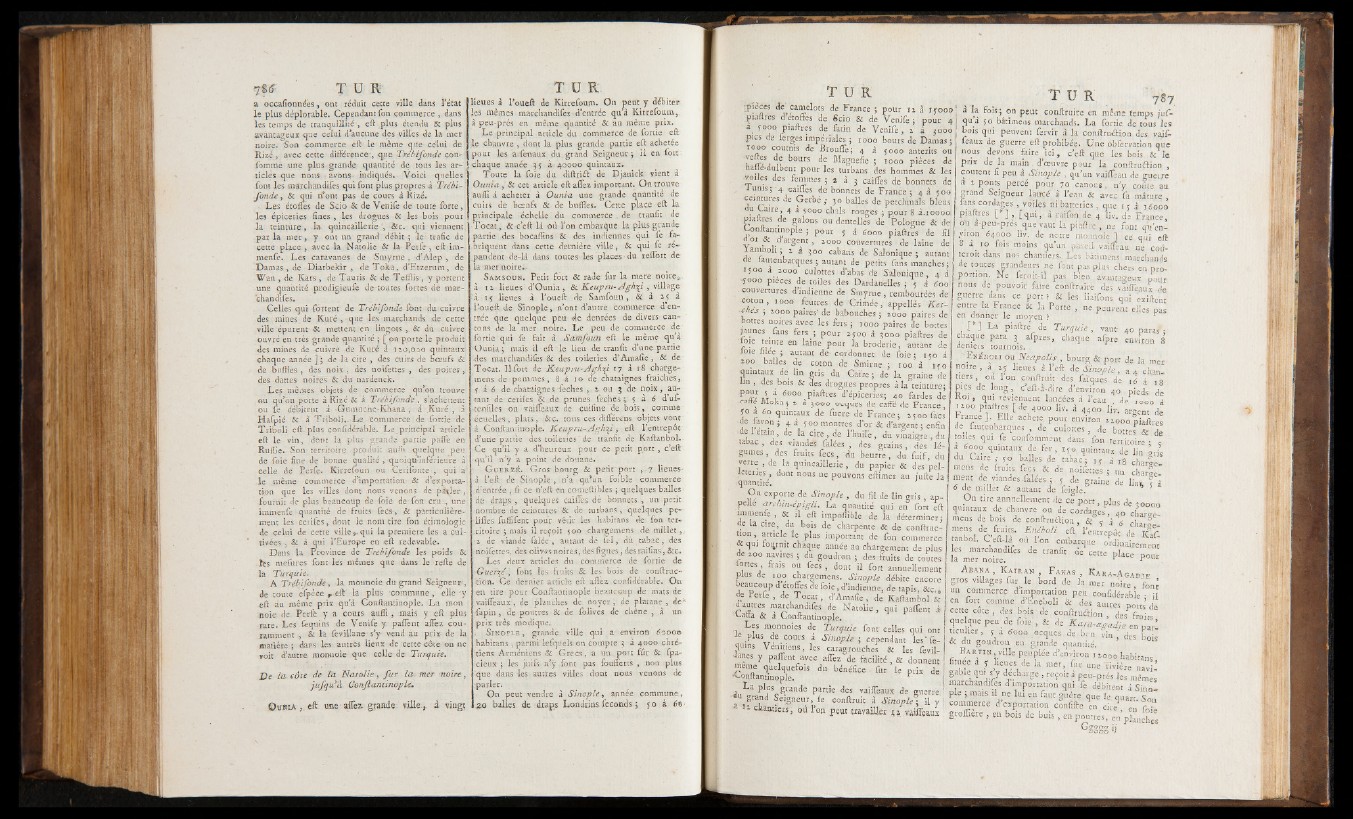 786 TUR
a occasionnées, ont réduit cette ville dans l'état
le plus déplorable. Cependant son commerce, dans
les temps de tranquillité, est plus étendu & plus
avantageux que celui d'aucune des villes de la mer
noire. Son commerce est le même que celui de
Rizé, avec cette différence, que Trébisonde con-
somme une plus grande quantité de tous les ar-
ticles que nous avons indiqués. Voici quelles
sont les marchandises qui sont plus propres à Trébi-
sonde, & qui n'ont pas de cours à Rizé.
Les étoffes de Scio & de Venise de toute sorte,
les épiceries fines, les drogues & les bois pour
la teinture, la quincaillerie, &c. qui viennent
par la mer, y ont un grand débit; le trafic de
cette place, avec la Natolie & la Perse, est im-
mense. Les caravanes de Smyrne, d'Alep, de
Damas, de Diarbekir, de Toka, d'Etzerum, de
Wan, de Kars, de Tauris & de Tefflis, y portent
une quantité prodigieuse de toutes sortes de mar-
chandises.
Celles qui sortent de Trébisonde sont du cuivre
des mines de Kuré, que les marchands de cette
ville épurent & mettent en lingots, & du cuivre
ouvré en très grande quantité; [ on porte le produit
des mines de cuivre de Kuré à 120,000 quintaux
chaque année ]; de la cire, des cuirs de bœufs &
de buffles, des noix, des noisettes, des poires,
des dattes noires & du nardenck.
Les mêmes objets de commerce qu'on trouve
ou qu'on porte à Rizé & à Trébisonde, s'achettent
ou se débitent à Gumocne-Khana, à Kuré, à
Haspié & à Triboli. Le commerce de sortie de
Triboli est plus considérable. Le principal article
est le vin, dont la plus grande partie passe en
Russie. Son territoire produit aussi quelque peu
de soie fine de bonne qualité, quoiqu'inférieure à
celle de Perse. Kirresoun ou Cerisonte, qui a
le même commerce d'importation & d'exporta-
tion que les villes dont nous venons de parler,
fournit de plus beaucoup de soie de son cru, une
immense quantité de fruits secs, & particulière-
ment les cerises, dont le nom tire son étimologie
de celui de cette ville, qui la premiere les a cul-
tivées, & à qui l'Europe en est redevable.
Dans la Province de Trebisonde les poids &
les mesures sont les mêmes que dans le reste de
la Turquie.
A Trébisonde, la monnoie du grand Seigneur,
de toute espèce, est la plus commune, elle y
est au même prix qu'à Constantinople. La mon
noie de Perse y a cours aussi; mais y est plus
rare. Les sequins de Venise y passent assez cou-
ramment, & la sevillane s'y vend au prix de la
matière; dans les autres lieux de cette côte on ne
voit d'autre monnoie que celle de Turquie.
De la côte de la Natolie, sur la mer noire,
jusqu'à Constantinople.
OUNIA, est une assez grande ville, à vingt
TUR
lieues à l'ouest de Kirresoum. On peut y débiter
les mêmes marchandises d'entrée qu'à Kirresoum,
à-peu-près en même quantité & au même prix.
Le principal article du commerce de sortie est
le chanvre, dont la plus grande partie est achetée
pour les arsenaux du grand Seigneur; il en sort
chaque année 35 à 40000 quintaux.
Toute la soie du district de Djanick vient à
Ounia, & cet article est assez important. On trouve
aussi à acheter à Ounia une grande quantité de
cuirs de bœufs & de buffles. Cette place est la
principale échelle du commerce de transit de
Tocat, & c'est là où l'on embarque la plus grande
partie des bocassins & des indiennes qui se fa-
briquent dans cette dernière ville, & qui se ré-
pandent de-là dans toutes les places du ressort de
la mer noire.
SAMSOUN. Petit fort & rade sur la mere noire,
à 12 lieues d'Ounia, & Keupru-Aghzi, village
à 15 lieues à l'ouest de Samsoun, & à 25 à
l'ouest de Sinople, n'ont d'autre commerce d'en-
trée que quelque peu de denrées de divers can-
tons de la mer noire. Le peu de commerce de
sortie qui se fait à Samsoun est le même qu'à
Ounia; mais il est le lieu de transit d'une partie
des marchandises & des toileries d'Amasie, & de
Tocat. Il sort de Keupru-Aghzi 17 à 18 charge-
mens de pommes, 8 à 10 de chataignes fraiches,
5 à 6 de chataignes seches, 2 ou 3 de noix, au-
tant de cerises & de prunes seches; 5 à 6 d'us-
tensiles ou vaisseaux de cuisine de bois, comme
écuelles, plats, &c. tous ces différens objets vont
à Constantinople. Keupru-Aghzi, est l'entrepôt
d'une partie des toileries de transit de Kastanbol.
Ce qu'il y a d'heureux pour ce petit port, c'est
qu'il n'y a point de douane.
GUERZÉ. Gros bourg & petit port, 7 lieues
à l'est de Sinople, n'a qu'un foible commerce
d'entrée, si ce n'est en comestibles; quelques balles
de draps, quelques caisses de bonnets, un petit
nombre de ceintures & de turbans, quelques pe-
lisses suffisent pour vêtir les habitans de son ter-
ritoire; mais il reçoit 500 chargemens de millet,
2 de viande salée, autant de sel, du tabac, des
noisettes, des olives noires, des figues, des raisins, &c.
Les deux articles du commerce de sortie de
Guerzé, sont les fruits & les bois de construc-
tion. Ce dernier article est assez considérable. On
en tire pour Constantinople beaucoup de mats de
vaisseaux, de planches de noyer, de platane, de
sapin, de poutres & de solives de chêne, à un
prix très modique.
SINOPLE, grande ville qui a environ 60000
habitans, parmi lesquels on compte 3 à 4000 chré-
tiens Arméniens & Grecs, a un port sûr & spa-
cieux; les juifs n'y sont pas soufferts, non plus
que dans les autres villes dont nous venons de
parler.
On peut vendre à Sinople, année commune,
20 balles de draps Londrins seconds; 50 à 60
TUR
pièces de camelots de France; pour 12 à 15000
piastres d'étoffes de Scio & de Venise; pour 4
à 5000 piastres de satin de Venise, 2 à 3000
pics de serges impériales; 1000 bours de Damas;
1000 coutnis de Brousse; 4 à 5000 anteris ou
vestes de bours de Magnesie; 1000 pièces de
pour les turbans des hommes & les
voiles des femmes; 2 à 3 caisses de bonnets de
Tunis; 4 caisses de bonnets de France; 4 à 500
ceintures de Gerbé; 30 balles de perchmals bleus
du Caire, 4 à 5000 chals rouges; pour 8 à 10000
piastres de galons ou dentelles de Pologne & de
Constantinople; pour 5 à 6000 piastres de fil
d'or & d'argent, 2000 couvertures de laine de
Yamboli; 2 à 300 cabans de Salonique; autant
de fautenbarques; autant de petits sans manches;
1500 à 2000 culottes d'abas de Salonique, 4 à
5000 pièces de toiles des Dardanelles; 5 à 600
couvertures d'indienne de Smyrne, rembourrées de
coton, 1000 feutres de Crimée, appellés Ket-
chés; 2000 paires de babouches; 2000 paires de
bottes noires avec les fers; 1000 paires de bottes
jaunes sans fers; pour 2500 à 3000 piastres de
soie teinte en laine pour la broderie, autant de
soie filée; autant de cordonnet de soie; 150 à
200 balles de coton de Smirne; 100 à 150
quintaux de lin gris du Caire; de la graine de
lin, des bois & des drogues propres à la teinture;
pour 5 à 6000 piastres d'épiceries; 40 fardes de
caffé Moka; 2 à 3000 ocques de caffé de France,
50 à 60 quintaux de sucre de France; 2500 sacs
de savon; 4 à 500 montres d'or & d'argent; enfin
de l'étain, de la cire, de l'huile, du vinaigre, du
tabac, des viandes salées, des grains, des lé-
gumes, des fruits secs, du beurre, du suif, du
verre, de la quincaillerie, du papier & des pel-
leteries, dont nous ne pouvons estimer au juste la
quantité.
On exporte de Sinople, du fil de lin gris, ap-
pellé archin-épigli. La quantité qui en sort est
immense, & il est impossible de la déterminer;
de la cire, du bois de charpente & de construc-
tion, article le plus important de son commerce
& qui fournit chaque année au chargement de plus
de 200 navires; du goudron; des fruits de toutes
sortes, frais ou secs, dont il sort annuellement
plus de 100 chargemens. Sinople débite encore
beaucoup d'étoffes de soie, d'indienne, de tapis, &c.,
de Perse, de Tocat, d'Amasie, de Kastambol &
d'autres marchandises de Natolie, qui passent à
Caffa & à Constantinople.
Les monnoies de Turquie sont celles qui ont
le plus de cours à Sinople; cependant les se-
quins Vénitiens, les caragrouches & les sevil-
lanes y passent avec assez de facilité, & donnent
même quelquefois du bénéfice sur le prix de
Constantinople.
La plus grande partie des vaisseaux de guerre
du grand Seigneur, se construit à Sinople; il y
a 12 chantiers, où l'on peut travailler 12 vaisseaux
TUR 787
à la fois; on peut construire en même temps jus-
qu'à 50 bâtimens marchands. La sortie de tous les
bois qui peuvent servir à la construction des vais-
seaux de guerre est prohibée. Une observation que
nous devons faire ici, c'est que les bois & le
prix de la main d'œuvre pour la construction,
coutent si peu à Sinople, qu'un vaisseau de guerre
à 2 ponts percé pour 70 canons, n'y coûte au
grand Seigneur lancé à l'eau & avec sa mâture,
sans cordages, voiles ni batteries, que 15 à 16000
piastres [*], [qui, à raison de 4 liv. de France,
ou à-peu-près que vaut la piastre, ne font qu'en-
viron 64000 liv. de notre monnoie ] ce qui est
8 à 10 fois moins qu'un pareil vaisseau ne coû-
teroit dans nos chantiers. Les bâtimens marchands
de toutes grandeurs ne sont pas plus chers en pro-
portion. Ne seroit-il pas bien avantageux pour
nous de pouvoir faire construire des vaisseaux de
guerre dans ce port? & les liaisons qui existent
entre la France & la Porte, ne peuvent elles pas
en donner le moyen?
[*] La piastre de Turquie, vaut 40 paras;
chaque para 3 aspres, chaque aspre environ 8
deniers tournois.
ou Neapolis, bourg & port de la mer
noire, à 25 lieues à l'est de Sinople, a 4 chan-
tiers, où l'on construit des saïques de 16 à 18
pics de long, c'est-à-dire d'environ 40 pieds de
Roi, qui reviennent lancées à l'eau, de 1000 à
1200 piastres [de 4000 liv. à 4400 liv. argent de
France]. Elle achete pour environ 12000 piastres
de fautenbarques, de culottes, de bottes & de
toiles qui se consomment dans son territoire; 5
à 6000 quintaux de fer, 150 quintaux de lin gris
du Caire; 50 balles de tabac; 15 à 18 charge-
mens de fruits secs & de noisettes; un charge-
ment de viandes salées; 5 de graine de lin, 5 à
6 de millet & autant de seigle.
On tire annuellement de ce port, plus de 30000
quintaux de chanvre ou de cordages, 40 charge-
mens de bois de construction, & 5 à 6 charge-
mens de fruits. est l'entrepôt de Kas-
tanbol. C'est-là où l'on embarque ordinairement
les marchandises de transit de cette place pour
la mer noire.
ABANA, KAIRAN, FAKAS, KARA-AGADIE,
gros villages sur le bord de la mer noire, font
un commerce d'importation peu considérable; il
en sort comme d' & des autres ports de
cette côte, des bois de construction, des fruits,
quelque peu de soie, & de Kara-agadie en par-
ticulier, 5 à 6000 ocques de bon vin, des bois
& du goudron en grande quantité.
BARTIN, ville peuplée d'environ 12000 habitans,
située à 5 lieues de la mer, sur une rivière navi-
gable qui s'y décharge, reçoit à peu-près les mêmes
marchandises d'importation qui se débitent à Sino-
ple; mais il ne lui en faut guère que le quart. Son
commerce d'exportation consiste en cire, en soie
grossière, en bois de buis, en poutres, en planches
Ggggg ij